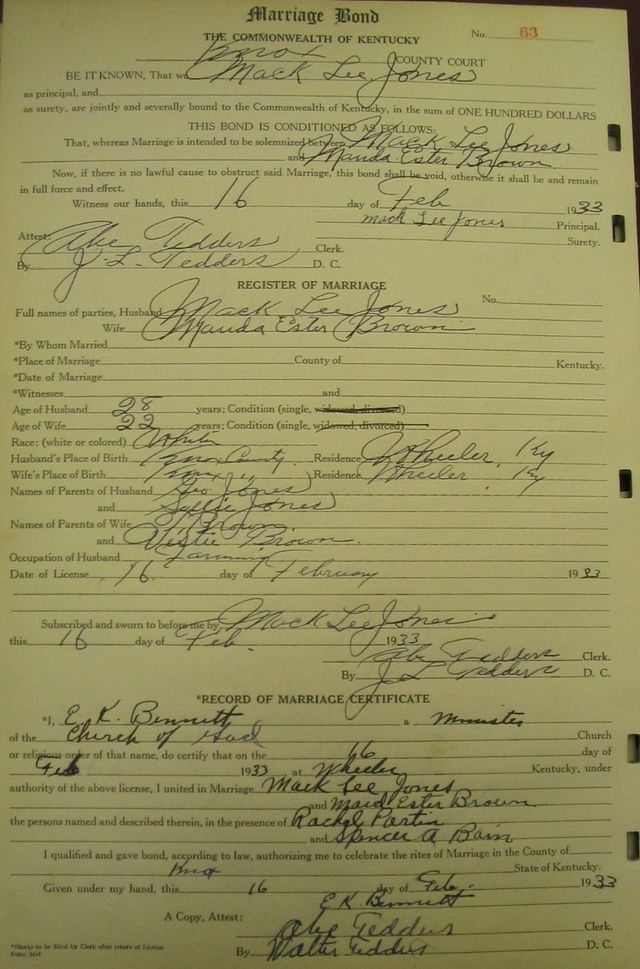 Marriage Bond
THE COMMONWEALTH OF KENTUCKY
No. 63
Knox COUNTY COURT
BE IT KNOWN, That we Mack Lee Jones
as principal, and
as surety, are jointly and severally bound to the Commonwealth of Kentucky, in the sum of ONE HUNDRED DOLLARS
THIS BOND IS CONDITIONED AS FOLLOWS:
That, whereas Marriage is intended to be solemnized between Mack Lee Jones
and Manda Ester Brown
Now, if there is no lawful cause to obstruct said Marriage, this bond shall be void, otherwise it shall be and remain
in full force and effect.
Witness our hands, this 16 day of Feb 1933
Mack Lee Jones Principal.
Attest: Surety.
Abe Tedders Clerk.
By J. L. Tedders D. C.
REGISTER OF MARRIAGE
No.
Full names of parties, Husband Mack Lee Jones
Wife Manda Ester Brown
*By Whom Married
*Place of Marriage County of Kentucky.
*Date of Marriage
*Witnesses and
Age of Husband 28 years; Condition (single, widowed, divorced)
Age of Wife 22 years; Condition (single, widowed, divorced)
Race: (white or colored) White
Husband's Place of Birth Knox County Residence Wheeler, Ky
Wife's Place of Birth Knox " Residence Wheeler, Ky
Names of Parents of Husband Geo Jones
and Jones
Names of Parents of Wife Brown
and Brown
Occupation of Husband Farming
Date of License 16 day of February 1933
Subscribed and sworn to before me by Mack Lee Jones
this 16 day of Feb 1933
Abe Tedders Clerk.
By J L Tedders D. C.
*RECORD OF MARRIAGE CERTIFICATE
*I, E. K. Bennett a Minister
of the Church of God Church
or religious order of that name, do certify that on the 16 day of
Feb 1933 at Wheeler Kentucky, under
authority of the above license, I united in Marriage Mack Lee Jones
and Maud Ester Brown
the persons named and described therein, in the presence of Rachel Partin
and Spencer A Bain
I qualified and gave bond, according to law, authorizing me to celebrate the rites of Marriage in the County of
Knox State of Kentucky.
Given under my hand, this 16 day of Feb. 1933
E K Bennett
A Copy, Attest: Abe Tedders Clerk.
By Walter Tedders D. C.
*Blanks to be filled by Clerk after return of License